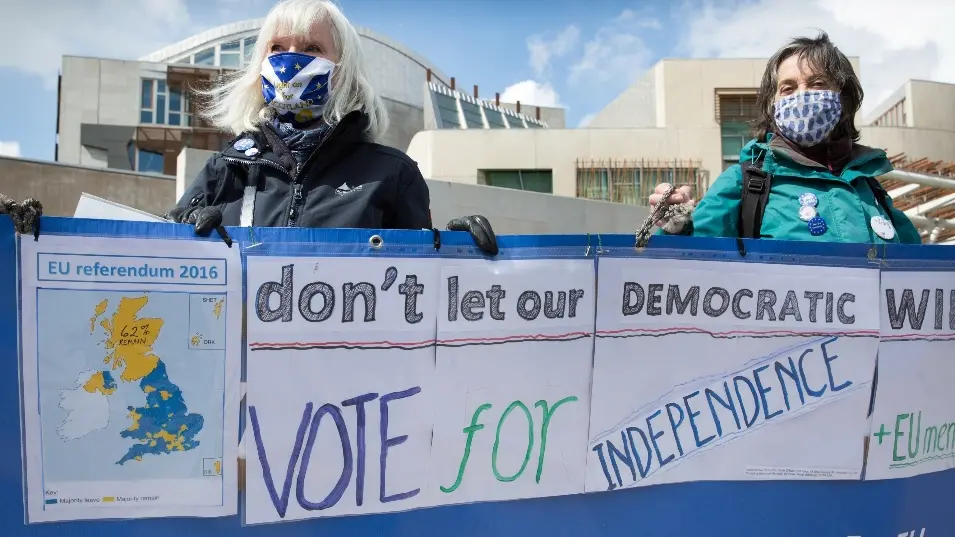 EU referendum 2016
SHET
62%
REMAIN
ORK
Key:
Majority leave Majority remain
don't let our DEMOCRATIC
VOTE for INDEPENDENCE